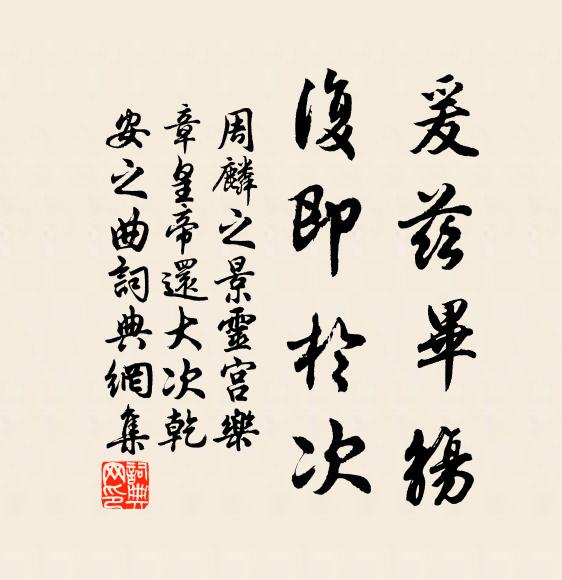 爰茲畢觴
復即於次
周麟之景靈宮樂
章皇帝還大次乾
安之曲詞典網集
詞典网印